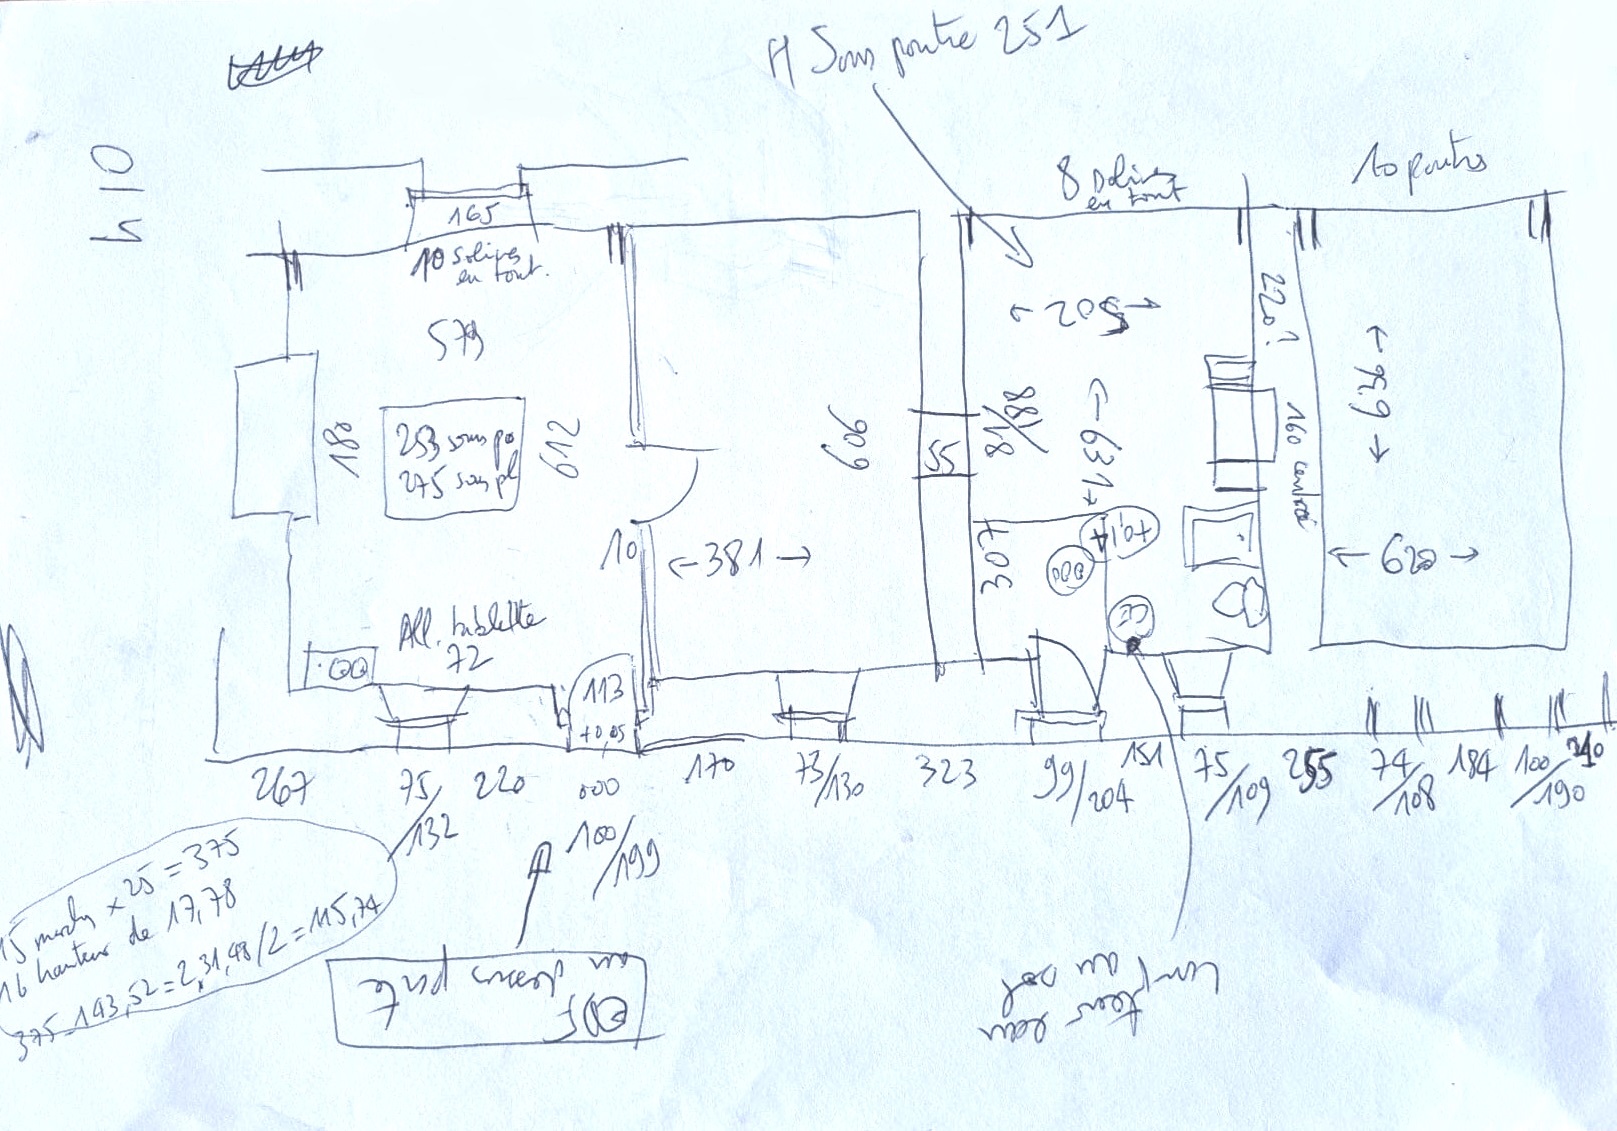 H Sous poutre 251
8 solives
en tout
10 poutres
165
10 solives
en tout.
579
205
220?
180
253 sous po
275 sous pl
612
609
55
88/188
631
160 centré
695
10
381
307
+0,14
000
620
All. tablette
72
113
+0,05
CE
267
75
/132
220
000
100
/199
170
73
/130
323
99
/204
151
75
/109
255
74
/108
184
100
/190
210
15 marches x 25 = 375
16 hauteur de 17,78
375-143,52=2,31,48/2=115,74
EDF
au dessus porte
compteur eau
au sol